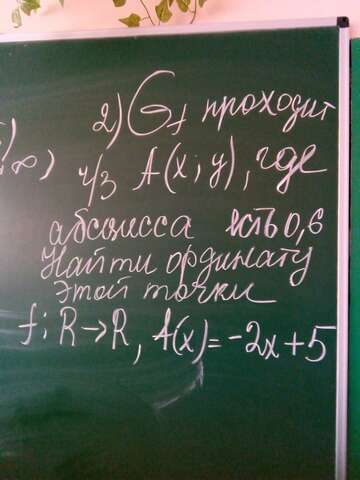 2) Gf проходит
ч/з A(x; y), где
∞)
абсцисса есть 0,6
Найти ординату
этой точки
f: R→R, A(x)=-2x+5